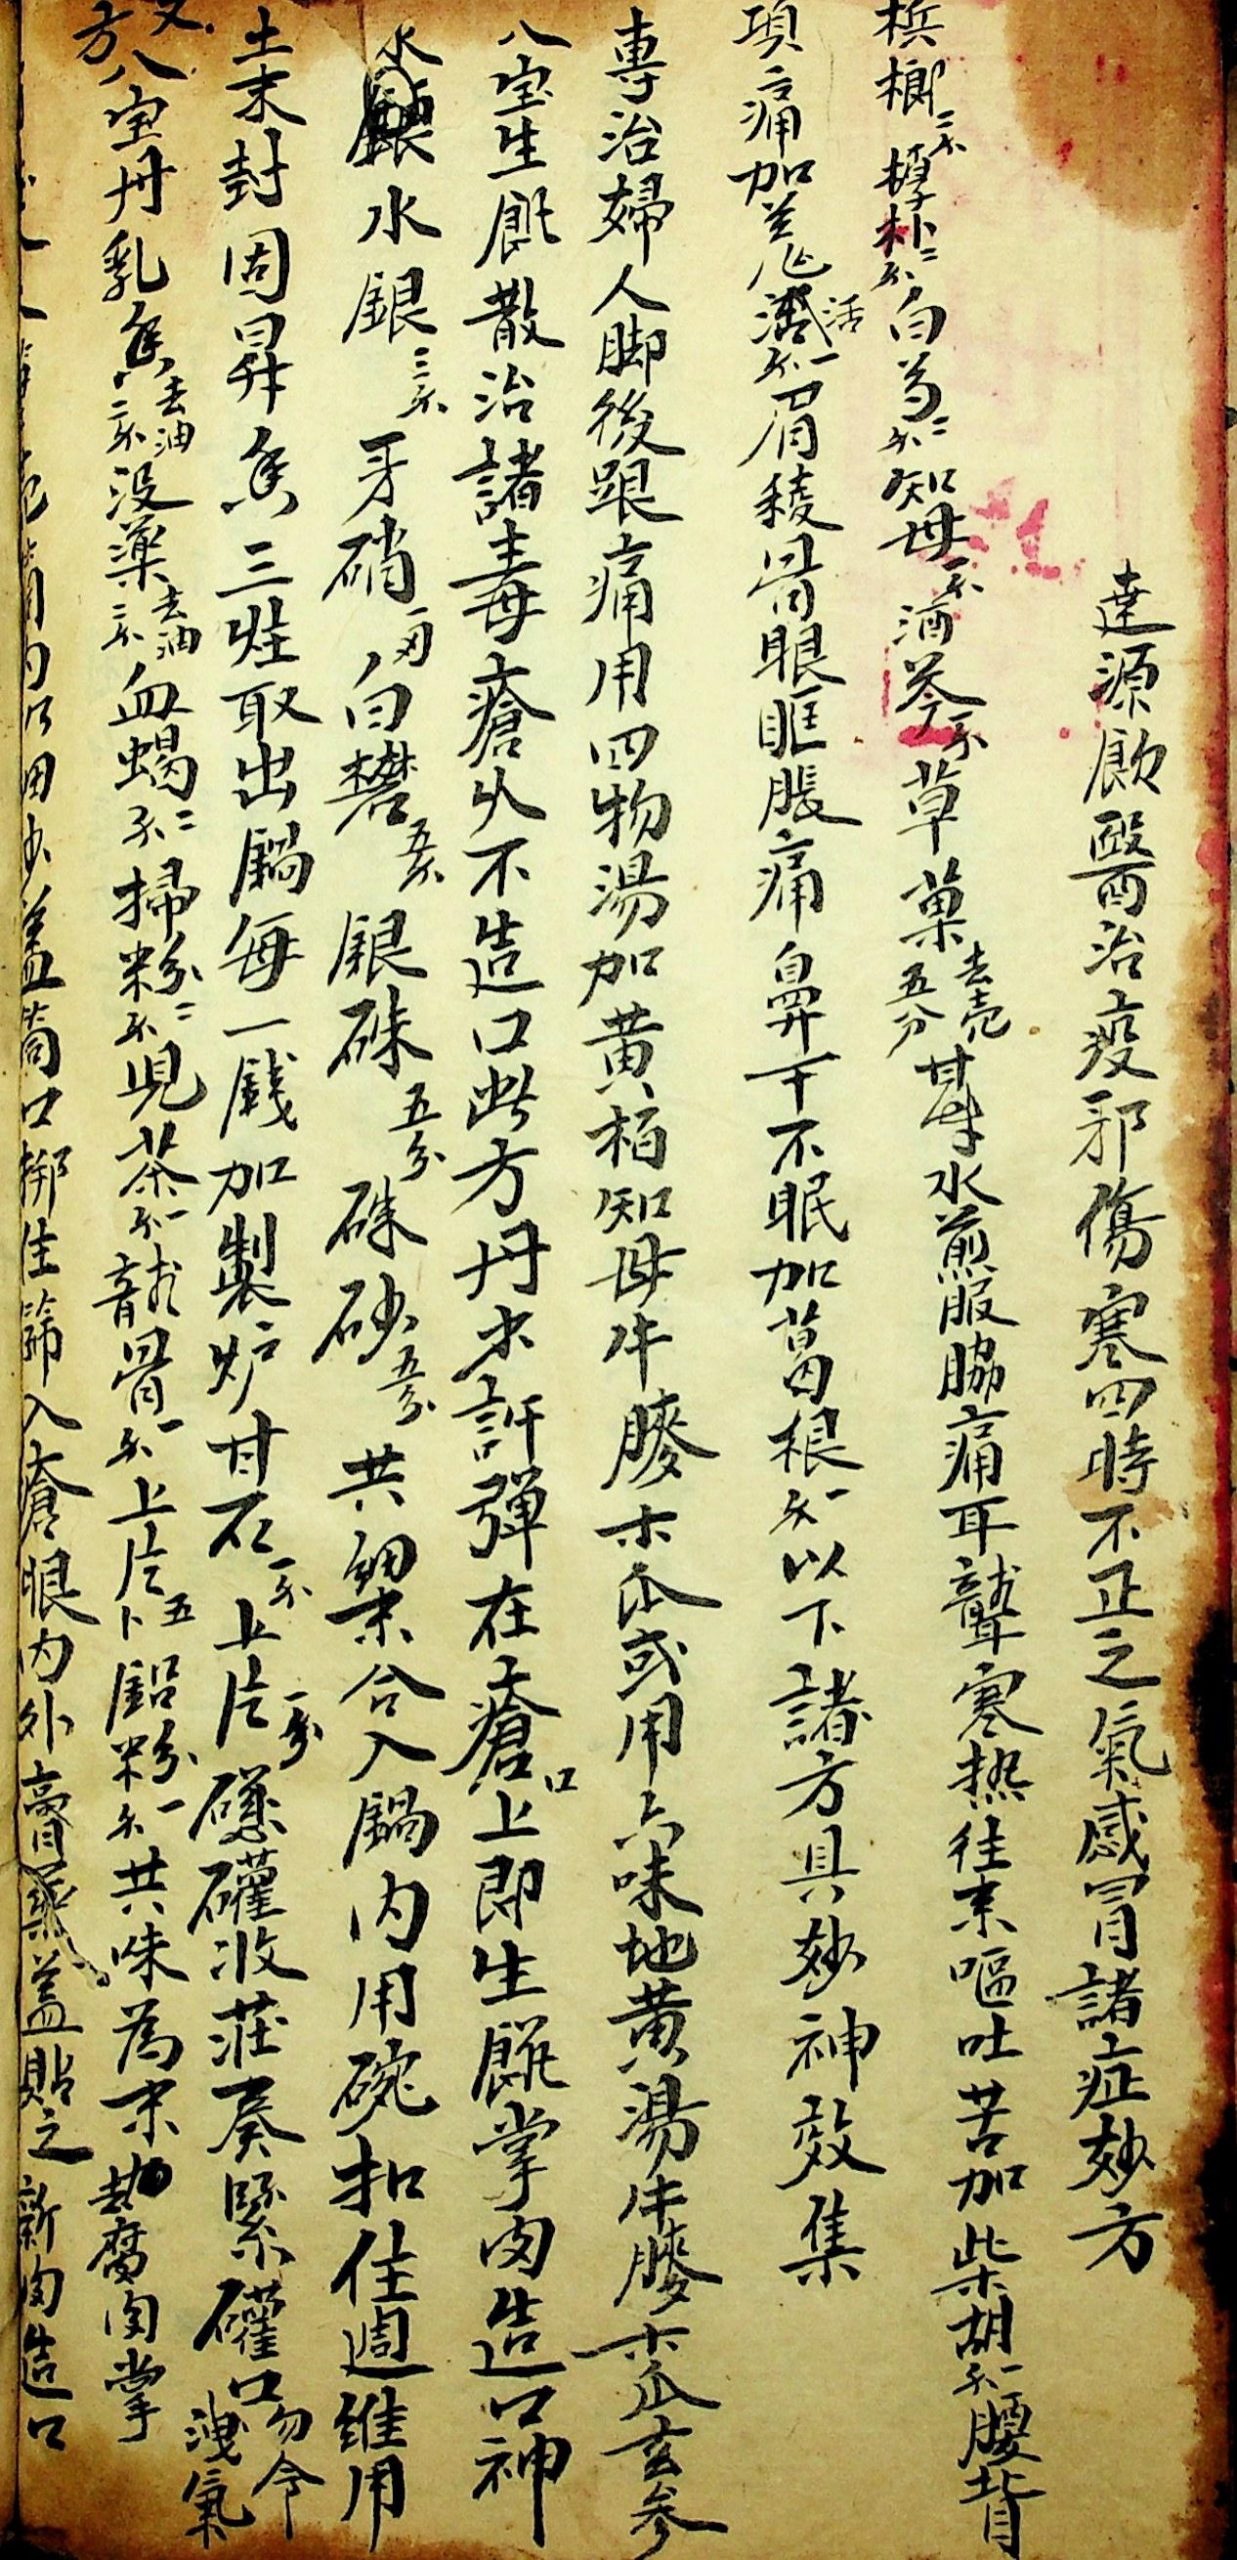 達源飲醫治疫邪傷寒四時不正之氣感冒諸症妙方
梹榔二不樟朴二不白芍二不知母一不酒芩一不草菓去壳五分甘草水煎服脇痛耳聾寒热往来嘔吐苦加柴胡一不腰背
項痛加羌活一不眉稜骨眼眶脹痛鼻干不眠加葛根一不以下諸方具妙神效集
專治婦人脚後跟痛用四物湯加黃柏知母牛膝木瓜或用六味地黃湯牛膝木瓜玄參
八宝生肌散治諸毒瘡久不造口此方丹少許彈在瘡口上即生肌掌肉造口神
水銀三不牙硝一刃白礬五不銀硃五分硃砂五分共細末合入鍋内用碗扣住週維用
土末封固昇焦三炷取出鍋每一錢加製炉甘石一不上片一分磁礶收莊奏緊礶口勿令洩氣
又方八宝丹乳焦去油二不没藥去油二不血蝎二不掃粉二不児茶一不龍骨一不上片五卜鉛粉一不共味為末腐肉掌
筒口入瘡眼内外膏蓋貼之新肉造口